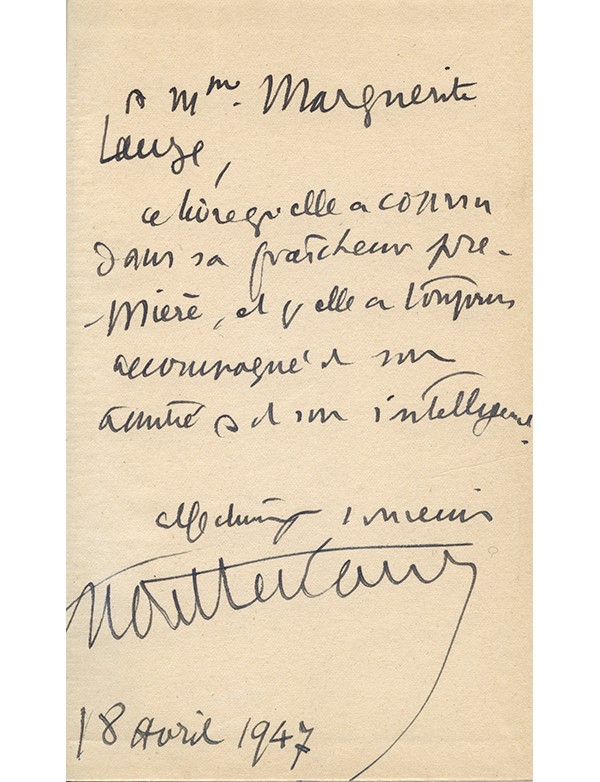 A Mme. Marguerite
Lauzé,
ce livre qu'elle a connu
dans sa fraîcheur pre-
-mière, et qu'elle a toujours
accompagné de son
amitié et de son intelligence.
Montherlant
18 Avril 1947